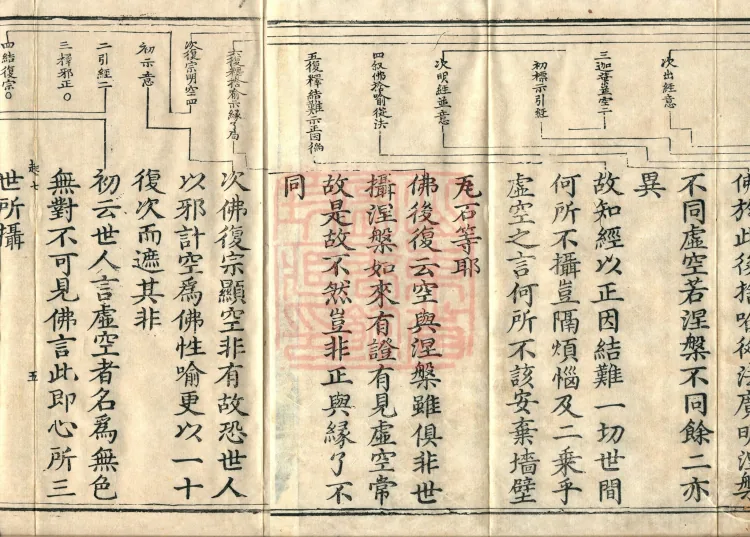 次出經意
三迦葉並空二
初標示引經
次明經並意
四叙佛捨喻從法
五復釋結難示正因徧
次復宗明空四
初示意
二引經二
三擇邪正○
四結復宗○
佛於此後捨喻從法廣明涅槃
不同虛空若涅槃不同餘二亦
異
故知經以正因結難一切世間
何所不攝豈隔煩惱及二乘乎
虛空之言何所不該安棄墻壁
瓦石等耶
佛後復云空與涅槃雖俱非世
攝涅槃如來有證有見虛空常
故是故不然豈非正與緣了不
同
次佛復宗顯空非有故恐世人
以邪計空爲佛性喻更以一十
復次而遮其非
初云世人言虛空者名爲無色
無對不可見佛言此即心所三
起七
五
世所攝